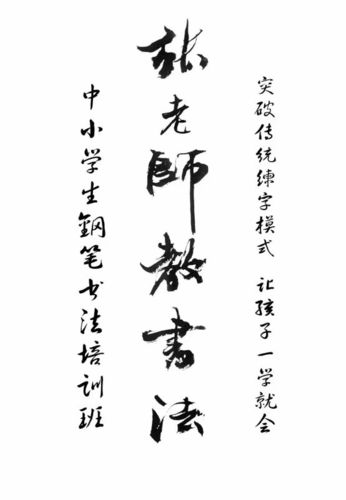 突破传统練字模式 让孩子一学就会
张老師教書法
中小学生鋼笔书法培训班